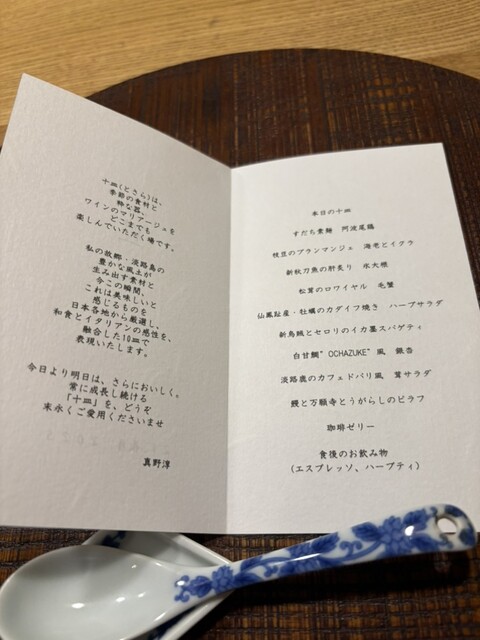 十皿(とさら)は、
季節の食材と
粋な器、
ワインのマリアージュを
どこまでも
楽しんでいただく場です。
私の故郷・淡路島の
豊かな風土が
生み出す素材と
今この瞬間、
これは美味しいと
感じるものを
日本各地から厳選し、
和食とイタリアンの感性を、
融合した10皿で
表現いたします。
今日より明日は、さらにおいしく。
常に成長し続ける
「十皿」を、どうぞ
末永くご愛用くださいませ
真野淳
本日の十皿
すだち素麺 阿波尾鶏
枝豆のブランマンジェ 海老とイクラ
新秋刀魚の肝炙り 氷大根
松茸のロワイヤル 毛蟹
仙鳳趾産・牡蠣のカダイフ焼き ハーブサラダ
新烏賊とセロリのイカ墨スパゲティ
白甘鯛"OCHAZUKE"風 銀杏
淡路鹿のカフェドパリ風 茸サラダ
鰻と万願寺とうがらしのピラフ
珈琲ゼリー
食後のお飲み物
(エスプレッソ、ハーブティ)